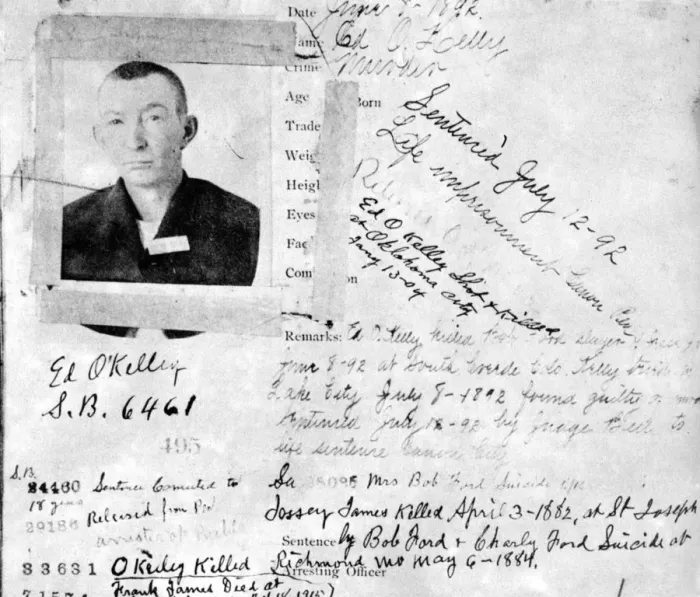 Date June 8-1892.
Name Ed O. Kelly
Crime Murder
Age Born
Trade
Weig
Heigh
Eyes
Fac
Com on
Sentenced July 12-92
Life imprisonment Canon
Ed O Kelley Shot & Killed
at Oklahoma City
Jany 13-04
Remarks: Ed O. Kelly killed Bob Ford slayer of
June 8-92 at South Creede Colo. Kelly tried
Lake City July 8-1892 found guilty
sentenced July 12-92 by Judge to
life sentence Canon City
Ed O'Kelley
S.B. 6461
495
S.B.
34460 Sentence Commuted to
18 years
29186 Released from Pen
33631 O Kelley Killed
Frank James Died at
See 35095 Mrs Bob Ford Suicide
Jessey James Killed April 3-1882, at St Joseph
Sentence by Bob Ford & Charly Ford Suicide at
Richmond Mo May 6-1884.
Arresting Officer